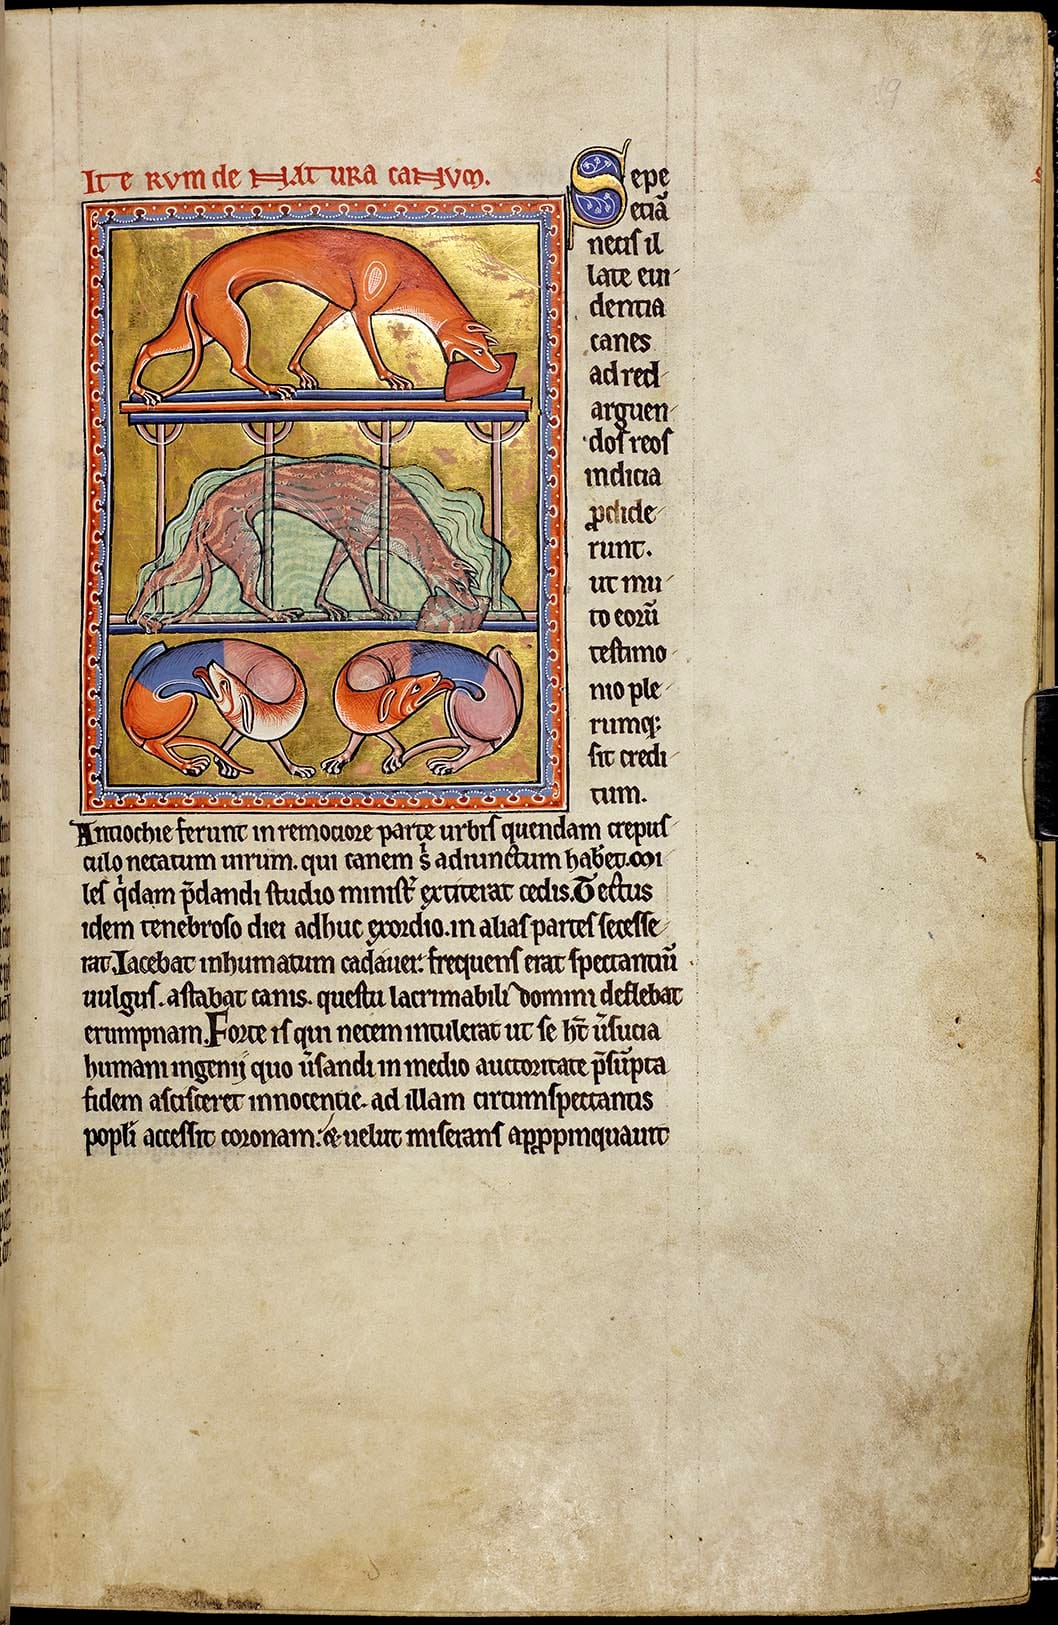 Iterum de natura canum.
Sepe
etiā
necis il
late eui
dentia
canes
ad red
arguen
dos reos
indicia
ꝓdide
runt.
ut mu
to eorū
testimo
nio ple
rumq;
sit credi
tum.
Antiochie ferunt in remotiore parte urbis quendam crepus
culo necatum uirum. qui canem s adiunctum habet. Mi
les qdam p̄dandi studio minist̄ extiterat cedis. Tectus
idem tenebroso diei adhuc exordio. in alias partes secesse
rat. Iacebat inhumatum cadauer: frequens erat spectantiū
uulgus. astabat canis. questu lacrimabili domini deflebat
erumpnam. Forte is qui necem intulerat ut se ht̄ ūsucia
humani ingenij quo ūsandi in medio auctoritate p̄sūpta
fidem ascisceret innocentie. ad illam circumspectantis
popli accessit coronam: & uelut miserans apꝓpinquauit
19